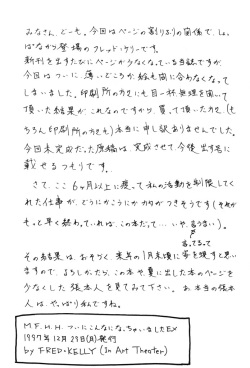 みなさん、どーも。今回はページの割りふりの関係で、しょ
ぱなから登場のフレッド・ケリーです。
新刊を出すたびにページが少なくなっている当誌ですが、
今回はついに、薄いどころか絵も間に合わなくなって
しまいました。印刷所の方にも目一杯無理を聞いて
頂いた結果がこれなのですから、買って頂いた方(も
ちろん印刷所の方も)本当に申し訳ありませんでした。
今回未完成だった原稿は、完成させて、今後出す本に
載せるつもりです。
さて、ここ6ヶ月以上に渡って私の活動を制限してく
れた仕事が、どうにかこうにかカタがつきそうです(それが
もっと早く終わっていれば、この本だって…いや、言うまい)。
言ってるって
その為者は、おそらく、来年の1月末頃に姿を現すと思い
ますので、よろしかったら、この本や夏に出した本のページを
少なくした張本人を見てみて下さい。あ、本当の張本
人は、やっぱり私ですね。
M.F.H.H. ついにこんなになっちゃいましたEX
1997年12月29日(月)発行
by FRED・KELLY (In Art Theater)